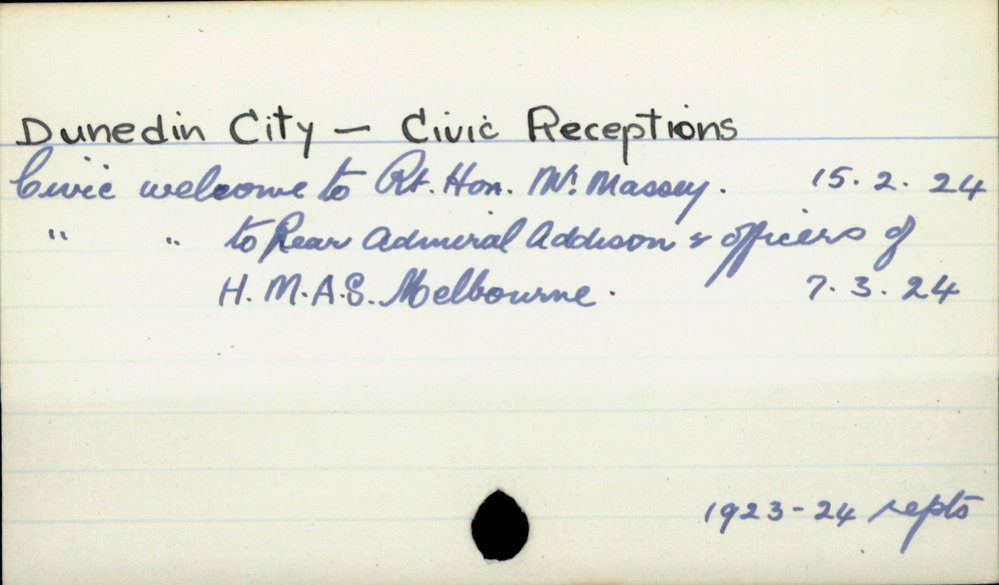 Dunedin City — Civic Receptions
Civic welcome to Rt. Hon. Mr. Massey. 15. 2. 24
" " to Rear Admiral Addison & officers of
H. M. A. S. Melbourne. 7. 3. 24
1923-24 repts